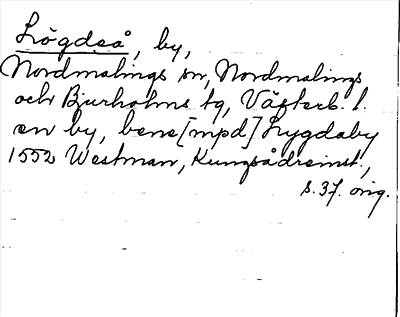 Lögdeå, by,
Nordmalings sn, Nordmalings
och Bjurholms tg, Västerb. l.
en by, bene[mpd] Lygdaby
1552 Westman, Kungsådreinst.,
s. 37. orig.